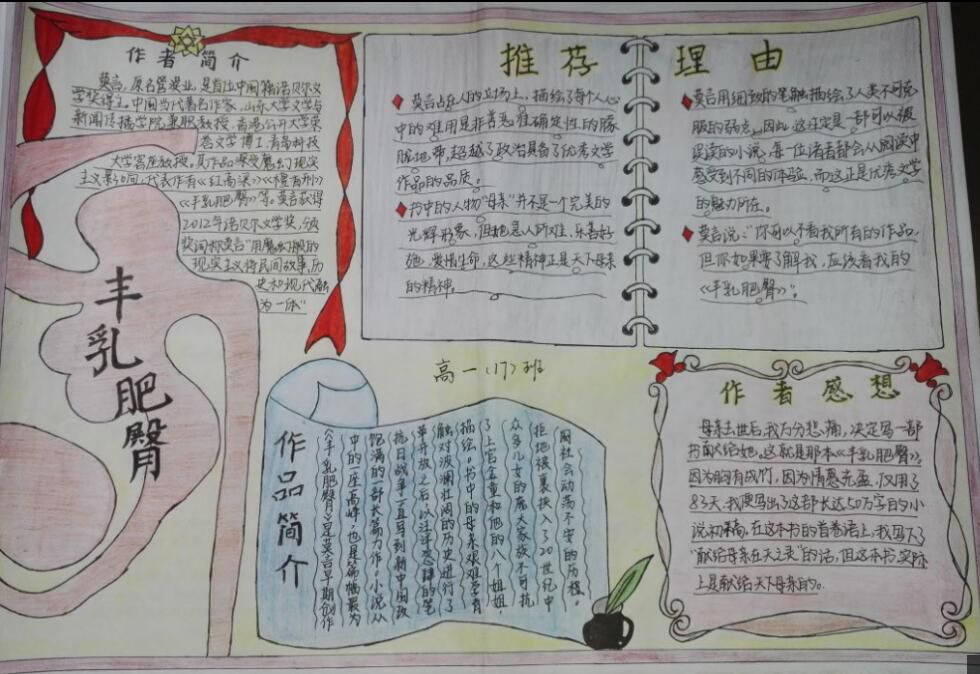 作者简介
莫言,原名管谟业,是首位中国籍诺贝尔文
学奖得主。中国当代著名作家,山东大学文学与
新闻传播学院兼职教授,香港公开大学荣
誉文学博士,青岛科技
大学客座教授。其作品深受魔幻现实
主义影响,代表作有《红高粱》《檀香刑》
《丰乳肥臀》等。莫言获得
2012年诺贝尔文学奖,颁
奖词称莫言"用魔幻般的
现实主义将民间故事,历
史和现代融
为一体"
丰乳肥臀
推荐理由
莫言占在人的立场上,描绘了每个人心
中的难用是非善恶准确定性的朦
胧地带,超越了政治具备了优秀文学
作品的品质。
书中的人物"母亲"并不是一个完美的
光辉形象,但她是人所难,乐善好
施,爱惜生命,这些精神正是天下母亲
的精神。
莫言用细致的笔触描绘了人类不可克
服的弱点,因此,这注定是一部可以被
误读的小说,每一位读者都会从阅读中
感受到不同的体验,而这正是优秀文学
的魅力所在。
莫言说:"你可以不看我所有的作品,
但你如果要了解我,应该看我的
《丰乳肥臀》"。
高一(17)班
作品简介
《丰乳肥臀》是莫言早期创作
中的一座高峰,也是篇幅最为
饱满的一部长篇力作。小说从
抗日战争一直写到新中国改
革开放之后,以汪洋恣肆的笔
触对波澜壮阔的历史进行了
描绘。书中的母亲艰难孕育
了上官金童和他的八个姐姐,
众多儿女的庞大家族不可抗
拒地被裹挟入了20世纪中
国社会动荡不安的历程。
作者感想
母亲去世后,我万分悲痛,决定写一部
书献给她。这就是那本《丰乳肥臀》,
因为胸有成竹,因为情感充盈,仅用了
83天,我便写出了这部长达50万字的小
说初稿,在这本书的首卷语上,我写下了
"献给母亲在天之灵"的话,但这本书,实际
上是献给天下母亲的。